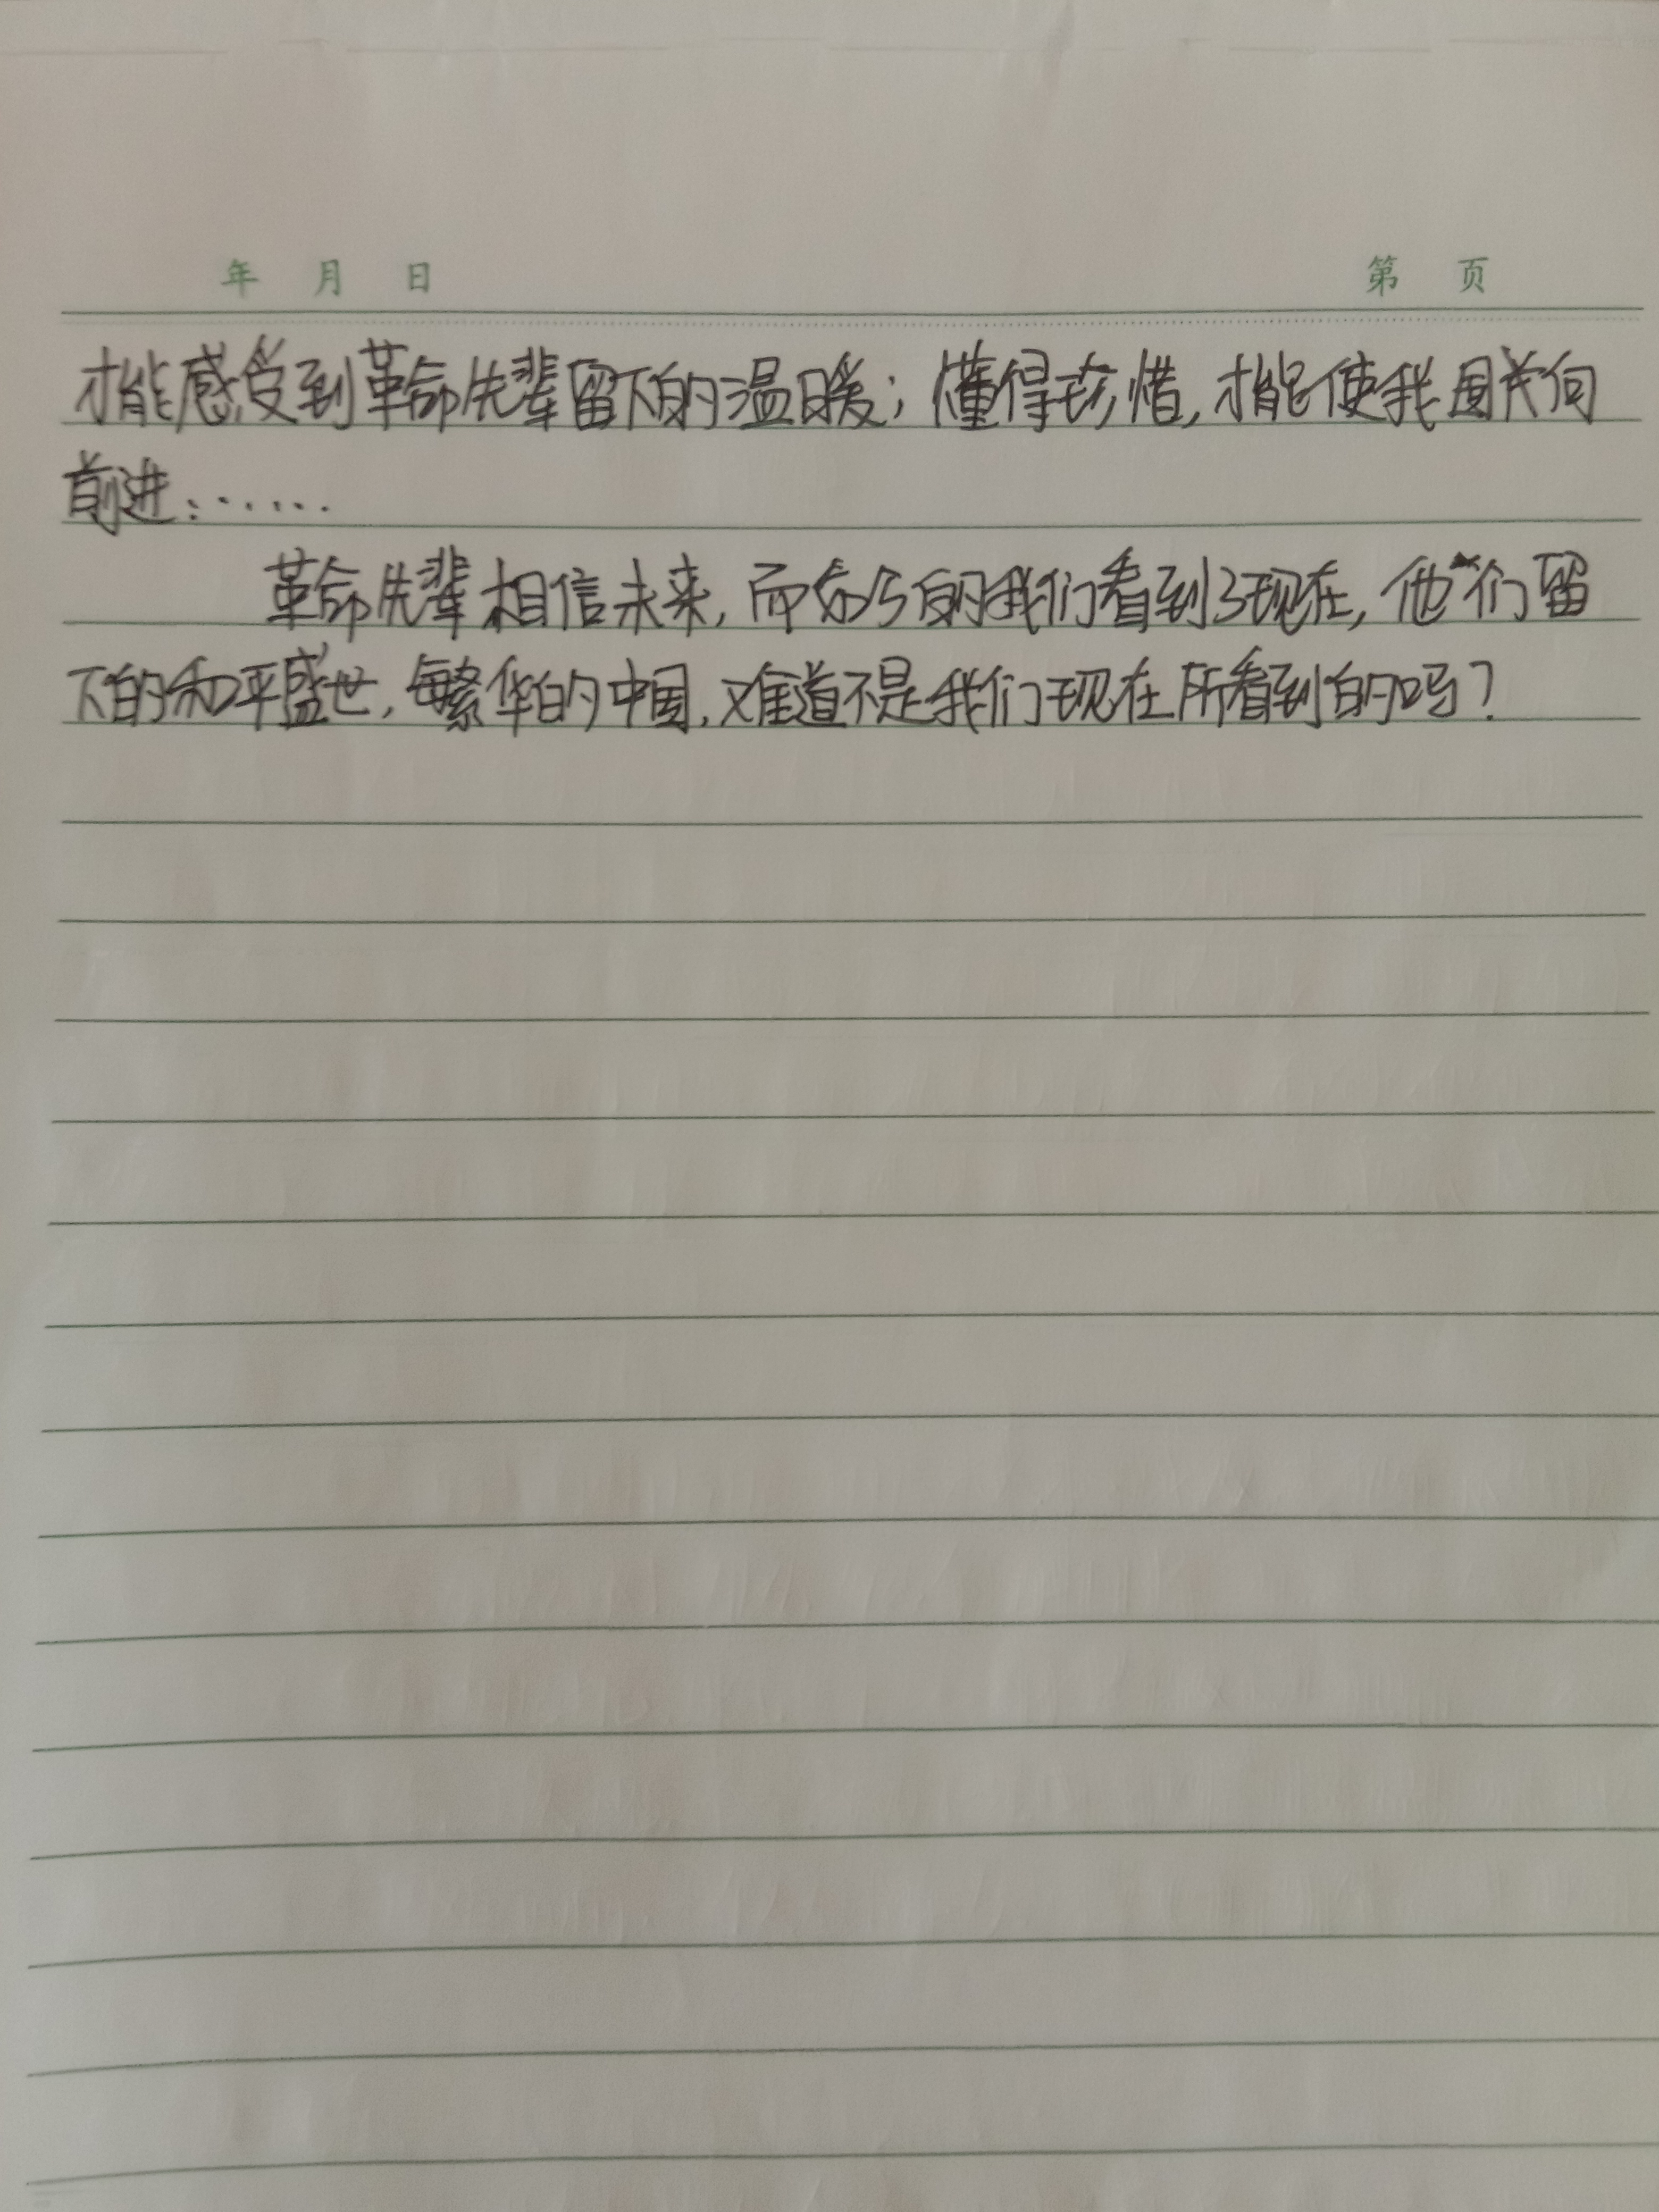 年 月 日 第 页
才能感受到革命先辈留下的温暖；懂得珍惜，才能使我国关向
前进：……
革命先辈相信未来，而如今的我们看到了现在，他们留
下的和平盛世，繁华的中国，难道不是我们现在所看到的吗？